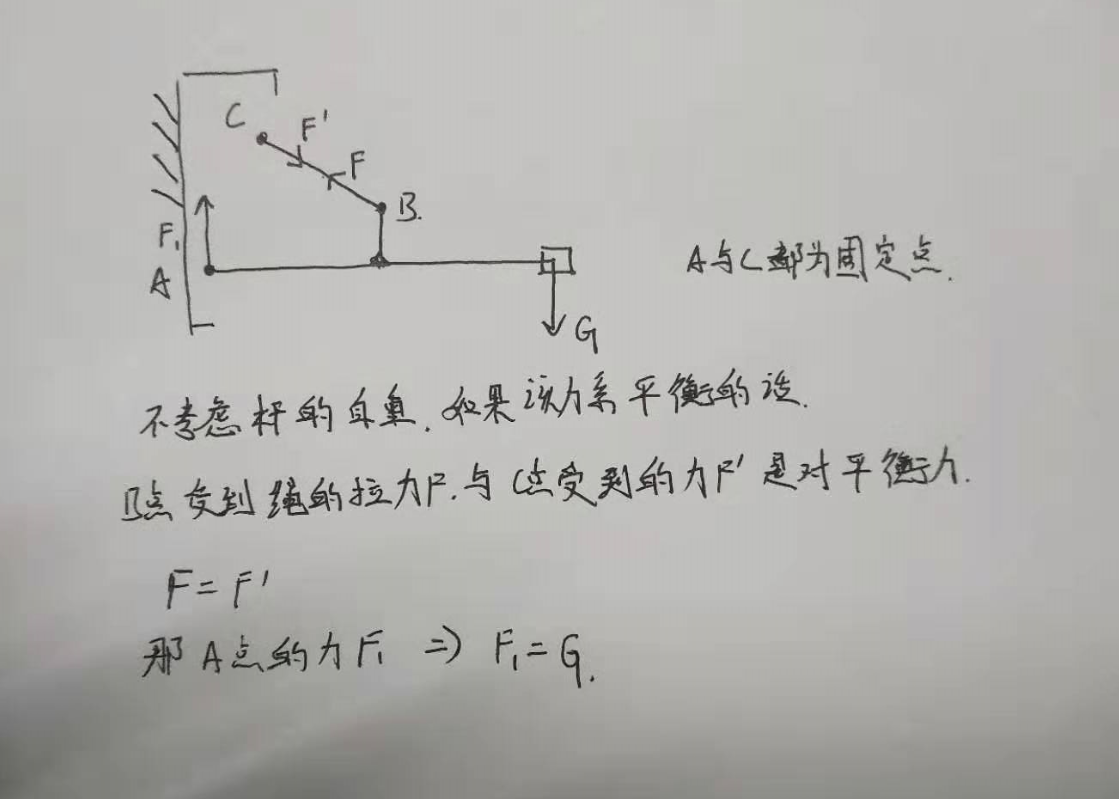 C
F'
F
B.
F₁
A
G
A与C都为固定点.
不考虑杆的自重.如果该力系平衡的话.
B点受到绳的拉力F.与C点受到的力F'是对平衡力.
F=F'
那A点的力F₁ => F₁=G.